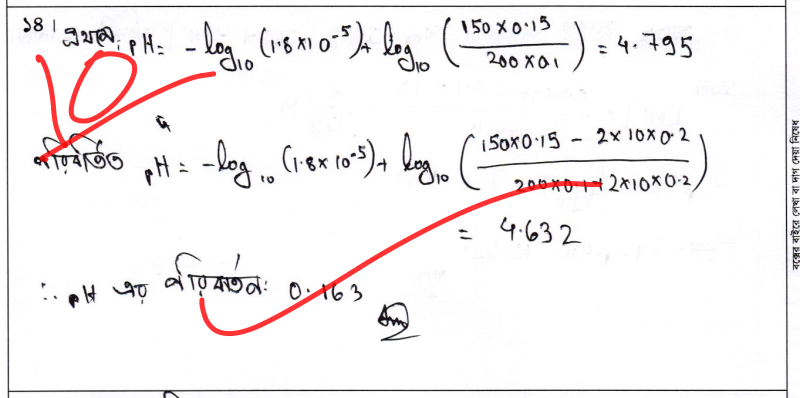 ১৪। প্রথমে, pH = -log₁₀ (1.8×10⁻⁵) + log₁₀ (150×0.15 / 200×0.1) = 4.795
পরিবর্তিত pH = -log₁₀ (1.8×10⁻⁵) + log₁₀ (150×0.15 - 2×10×0.2 / 200×0.1+2×10×0.2)
= 4.632
∴ pH এর পরিবর্তন: 0.163
Ans
বক্সের বাইরে লেখা বা দাগ দেয়া নিষেধ